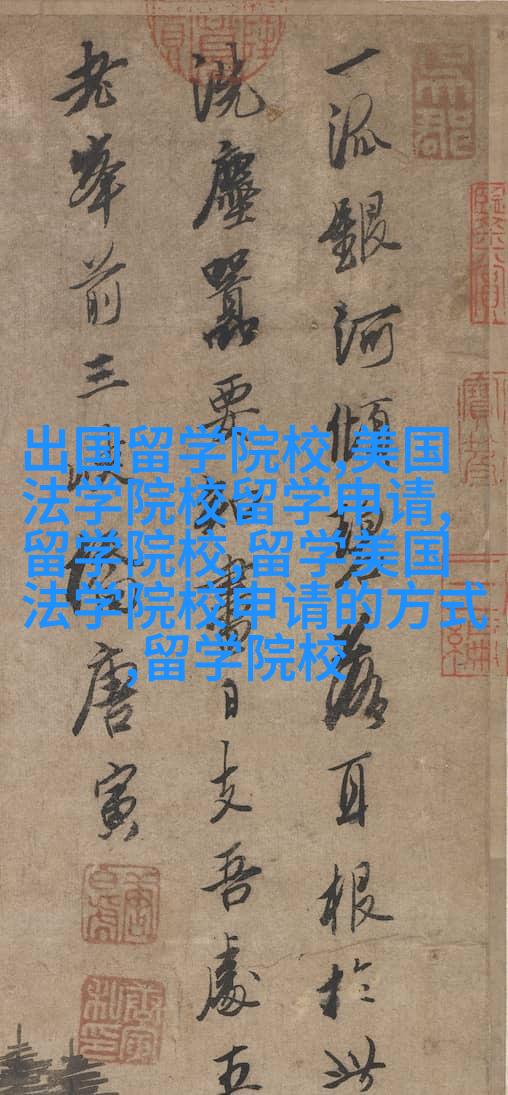 一派銀河傾碧落耳根於此
洗塵囂要知日支吾處五
老峯前三峽橋唐寅
出国留学院校,美国
法学院校留学申请,
留学院校,留学美国
法学院校申请的方式
,留学院校